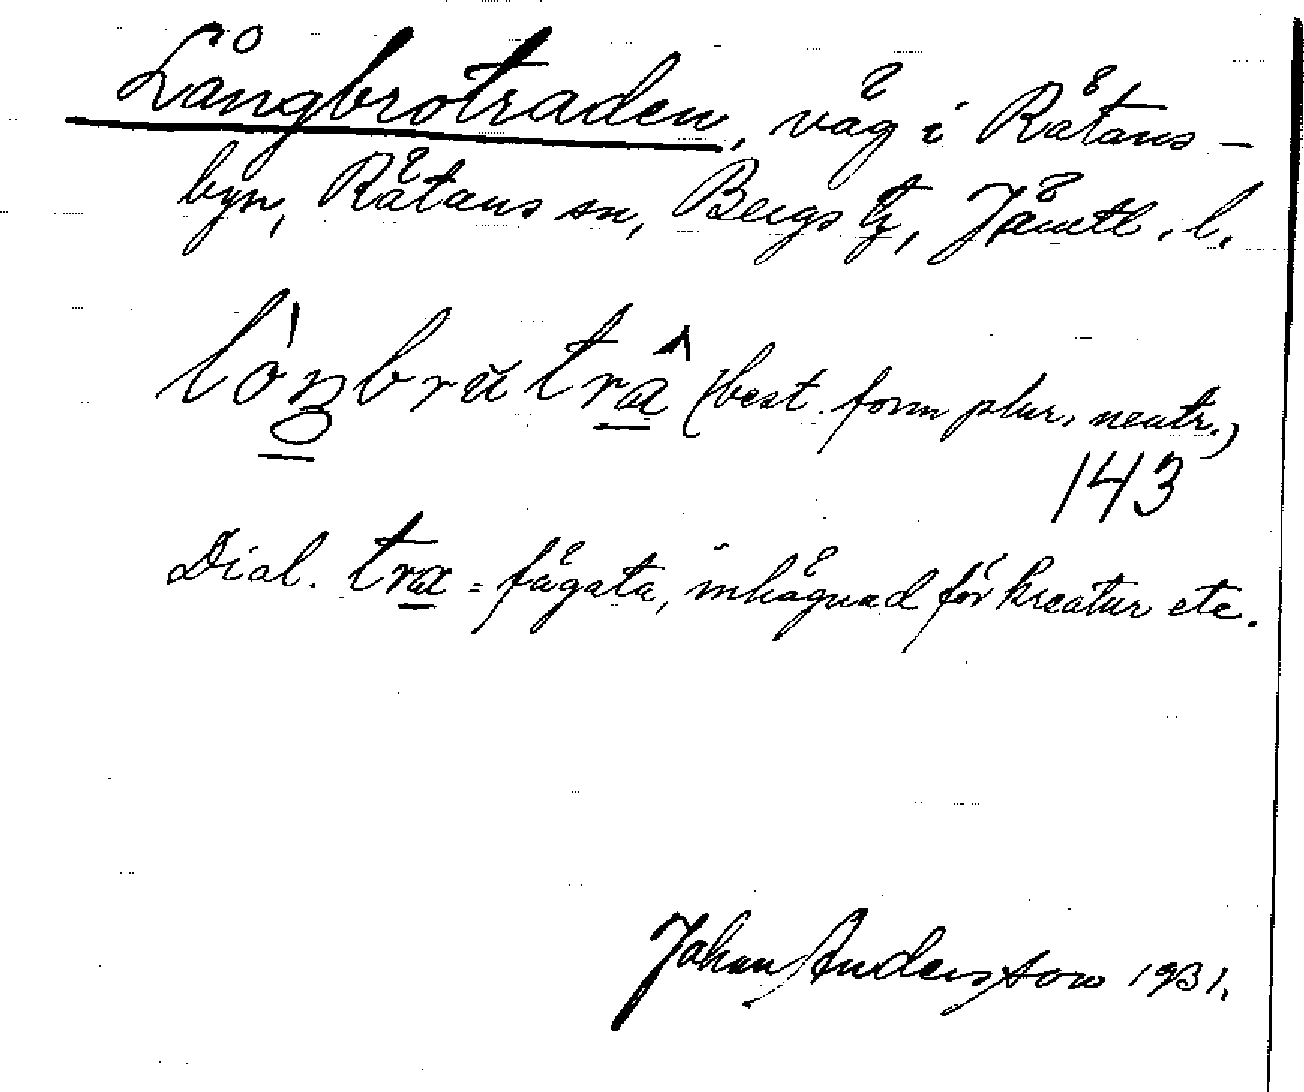 Långbrotraden, väg i Rätans-
byn, Rätans sn, Bergs tg, Jämtl. l.
(best. form plur. neutr.)
143
Dial. tra = fägata, inhägnad för kreatur etc.
Johan Andersson 1931.